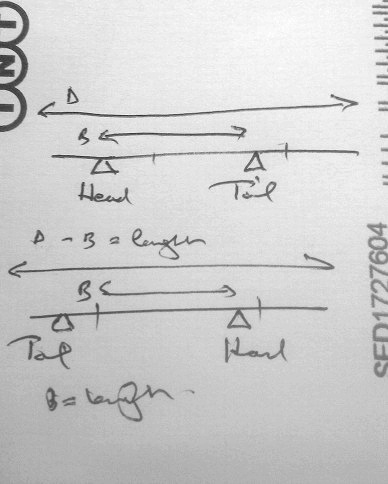 TNT
D
B
Head Tail
D - B = length
B
Tail Head
B = length
SED1727604